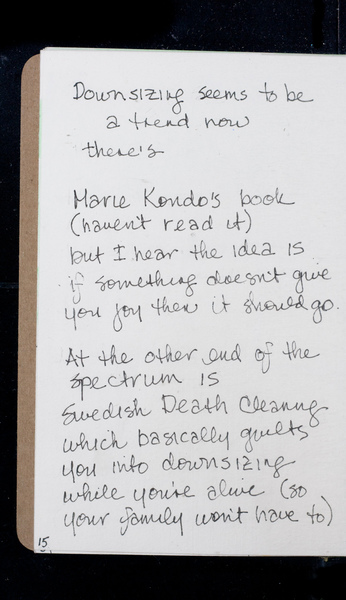 Downsizing seems to be
a trend now
there's
Marie Kondo's book
(haven't read it)
but I hear the idea is
if something doesn't give
you joy then it should go.
At the other end of the
spectrum is
Swedish Death Cleaning
which basically guilts
you into downsizing
while you're alive (so
your family won't have to)
15